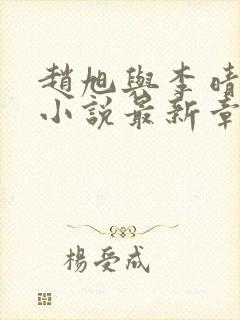 趙旭與李晴
小說最新章
楊受成